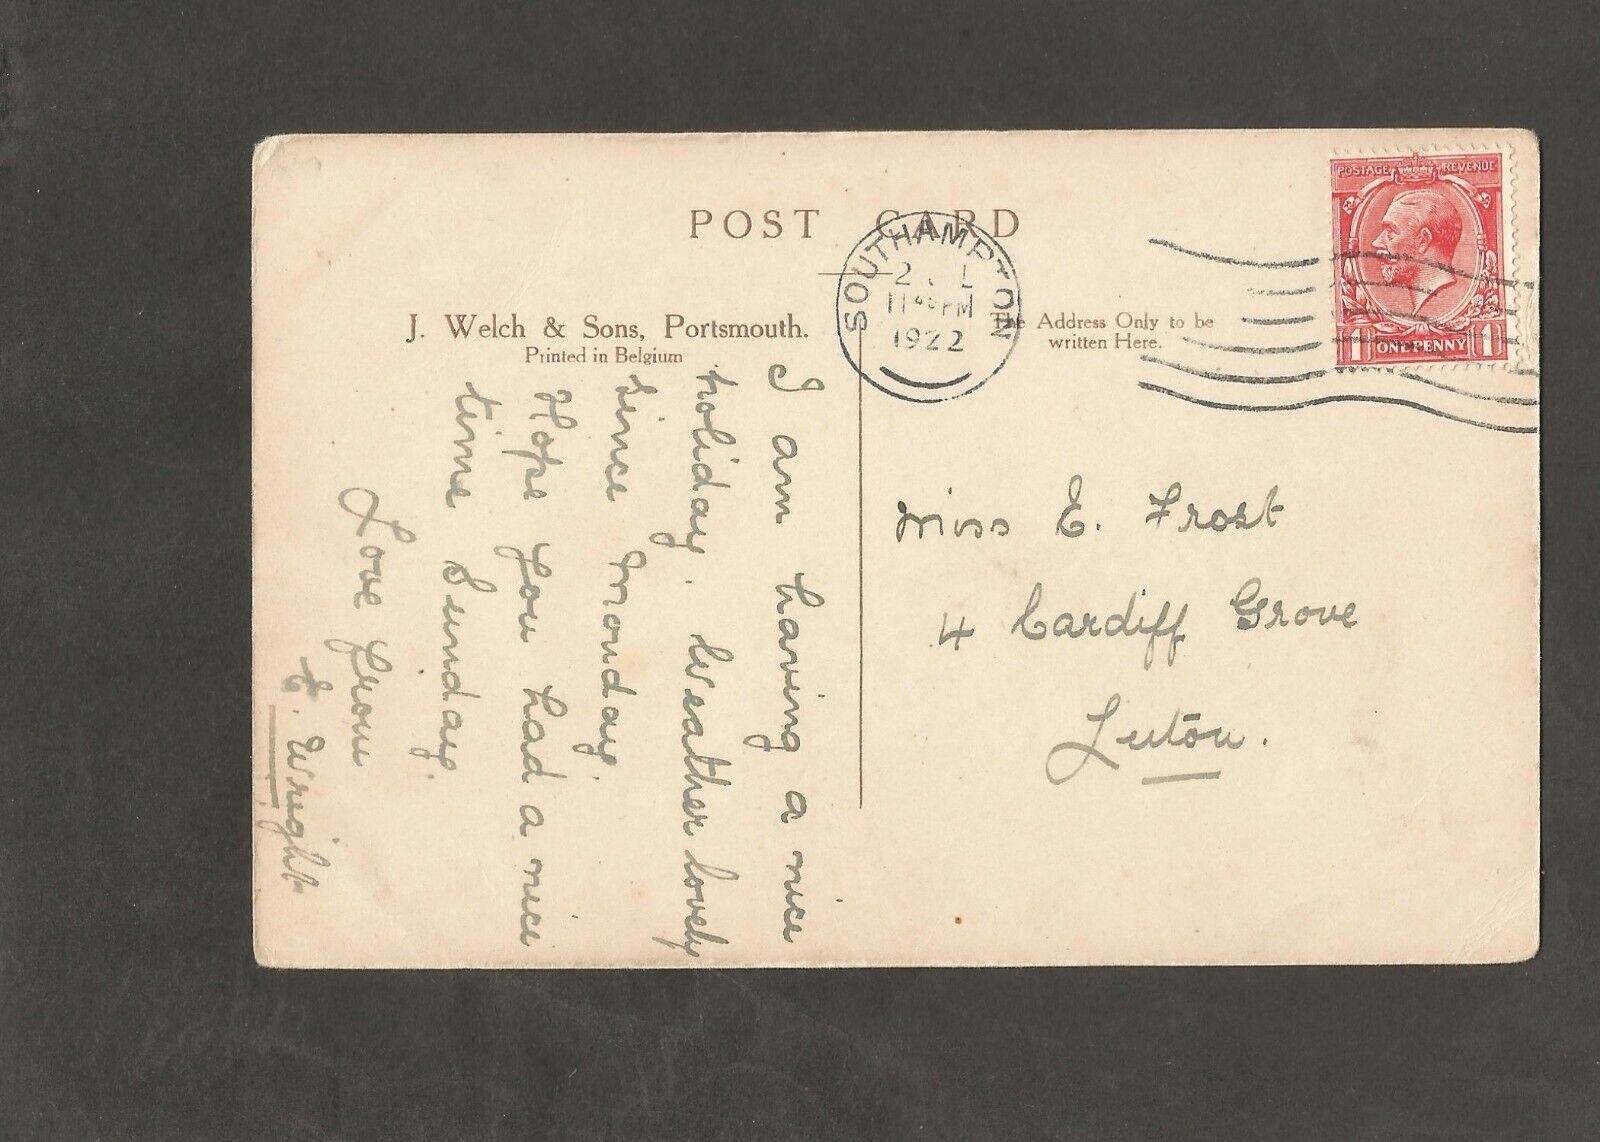 POST CARD
J. Welch & Sons, Portsmouth.
Printed in Belgium
The Address Only to be
written Here.
SOUTHAMPTON
11 45 PM
1922
POSTAGE REVENUE
1 ONE PENNY 1
I am having a nice
holiday. Weather lovely
since Monday.
Hope you had a nice
time Sunday.
Love from
E. Wright
Miss E. Frost
4 Cardiff Grove
Luton.